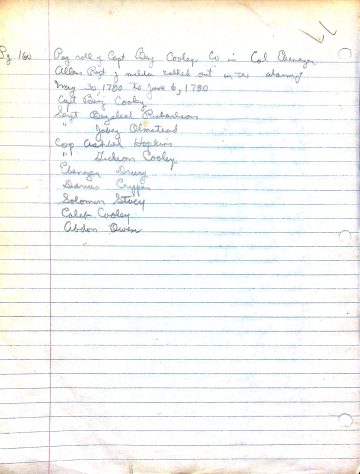 Pg 160 Pay roll of Capt Benj Cooley Co in Col Ebenezer
Allens Regt of militia called out in the alarm
May 30, 1780 to June 6, 1780
Capt Benj Cooley
Sergt Bezaleel Richardson
" Jabez Olmstead
Corp Ashbel Hopkins
" Gideon Cooley
Ebenezer Drury
Darius Crippen
Solomon Stacy
Caleb Cooley
Abdon Owen